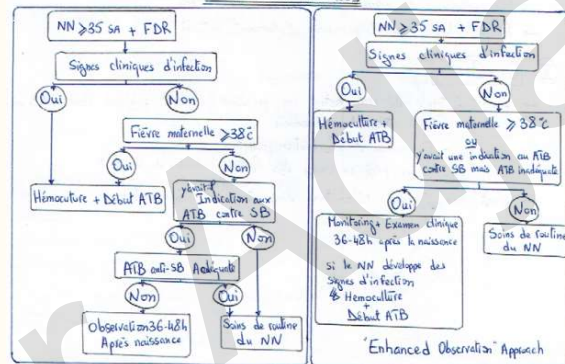 NN ≥35 SA + FDR
Signes cliniques d'infection
Oui
Non
Fièvre maternelle ≥38°c
Oui
Non
Hémocuture + Début ATB
Indication aux
ATB contre SB
Oui
Non
ATB anti-SB Adéquate
Non
Oui
Observation 36-48h
Après naissance
Soins de routine
du NN
NN ≥35 SA + FDR
Signes cliniques d'infection
Oui
Non
Hémoculture +
Début ATB
Fièvre maternelle ≥ 38°c
ou
y'avait une induction au ATB
contre SB mais ATB inadéquate
Oui
Non
Monitoring + Examen clinique
36-48h après la naissance
si le NN développe des
signes d'infection
Hemoculture
+
Début ATB
Soins de routine
du NN
"Enhanced Observation" Approach